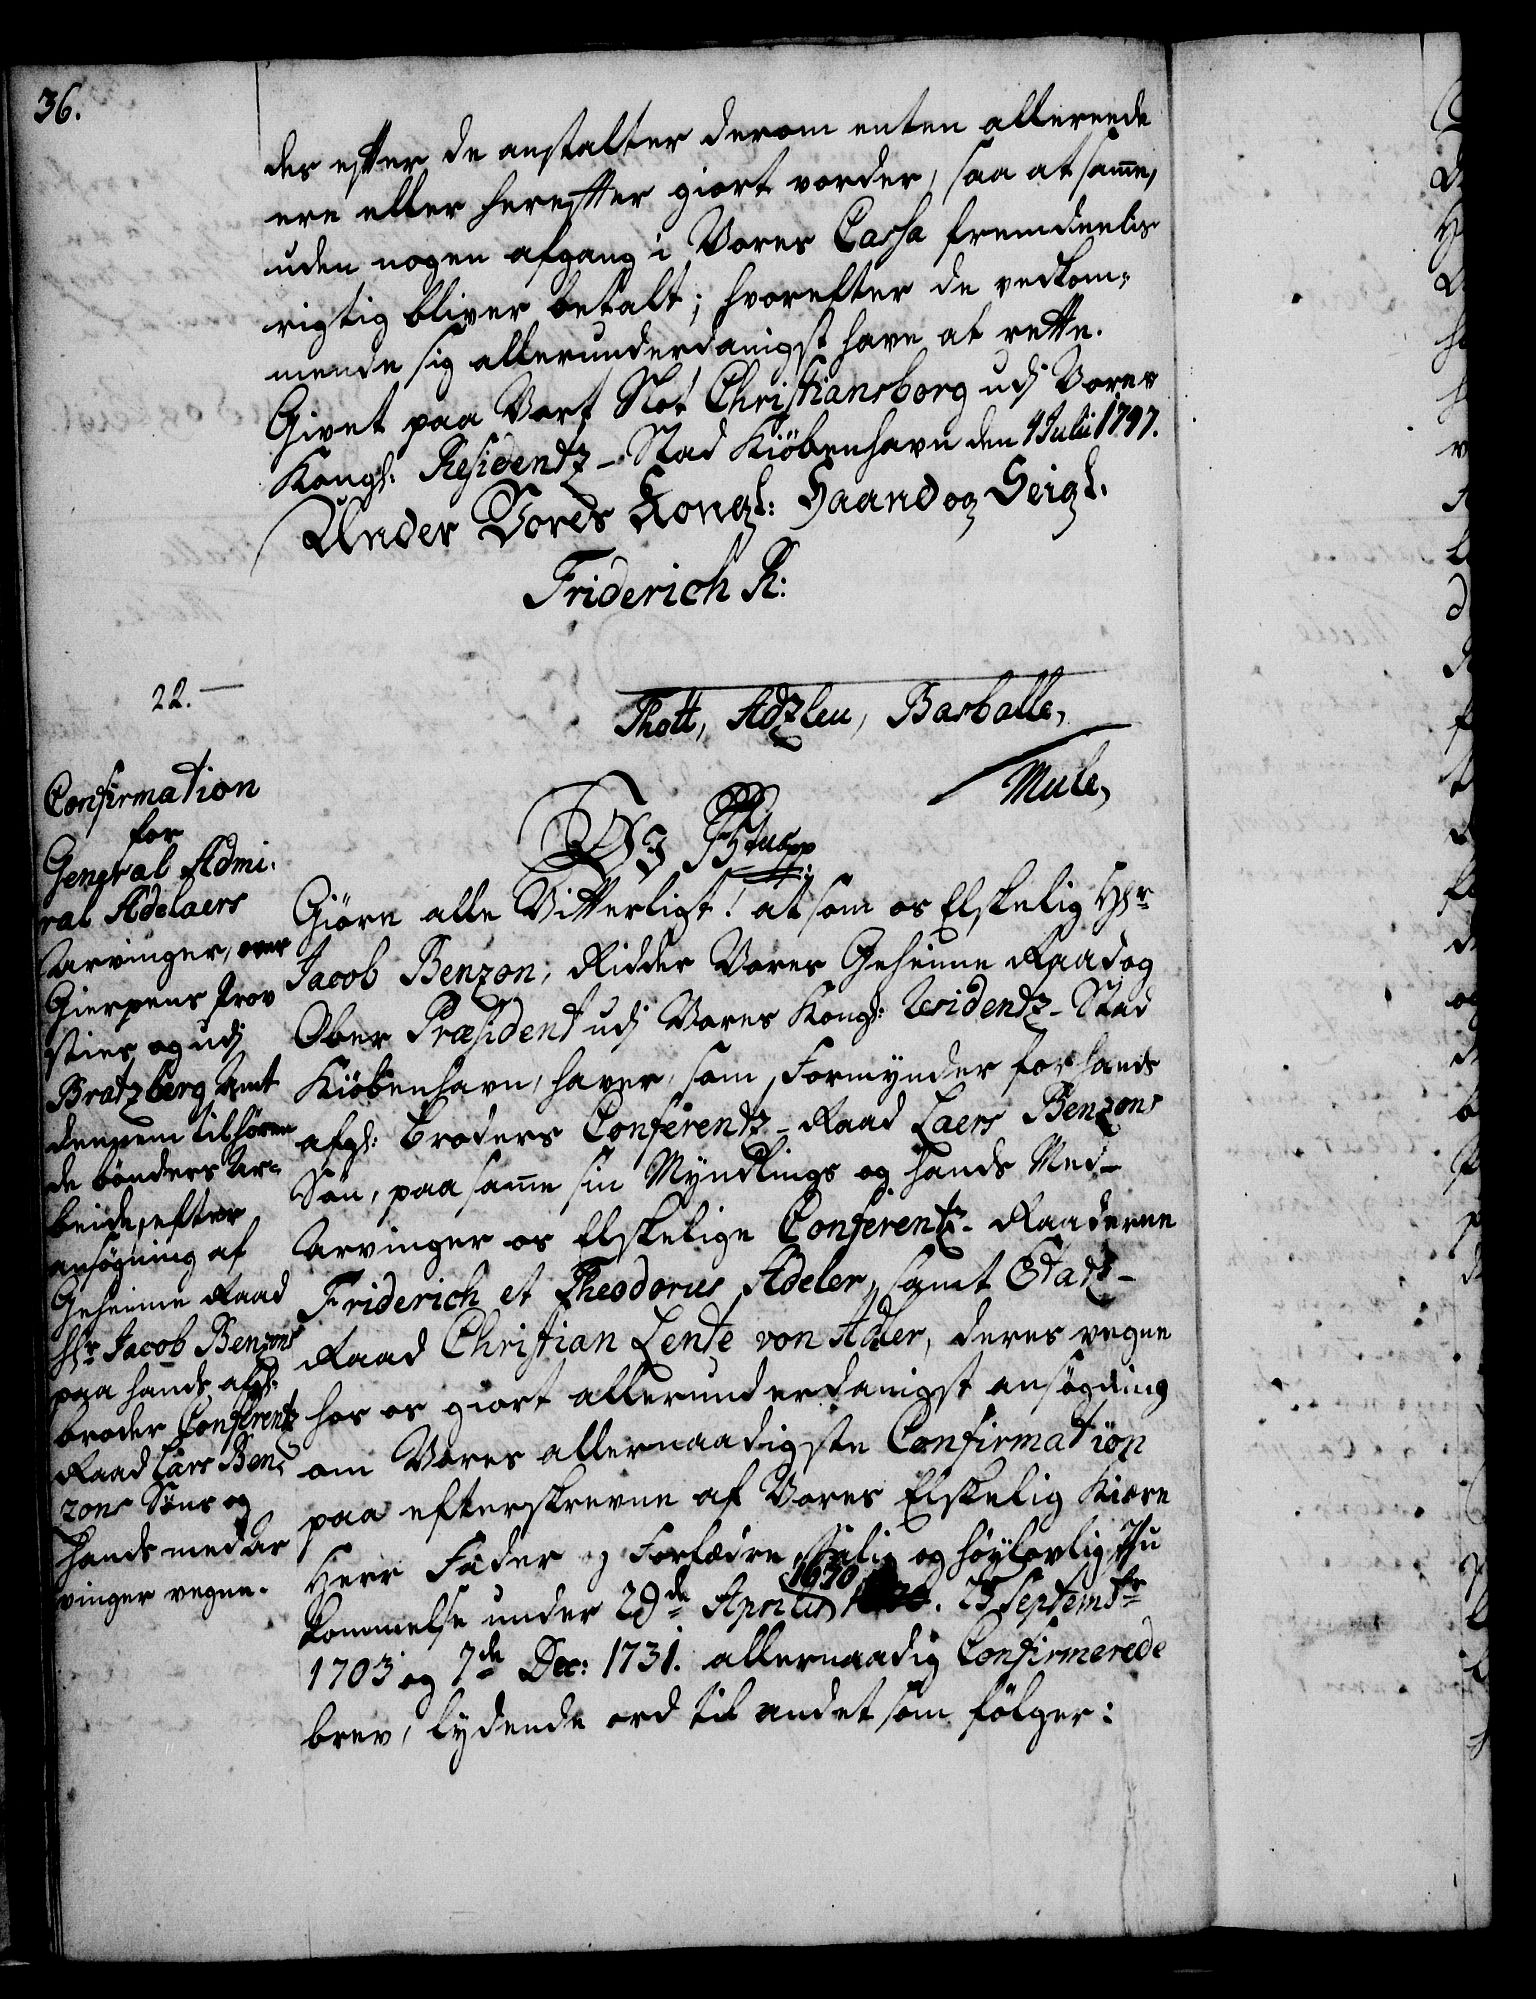 36.
der efter de anstalter derom enten allereede
ere eller herefter giort vorder, saa at samme,
uden nogen afgang i Vores Cassa fremdeelis
rigtig bliver betalt; hvorefter de vedkom-
mende sig allerunderdanigst have at rette.
Givet paa Vort Slot Christiansborg udj Vores
Kongl: Residentz-Stad Kiöbenhavn den 4 Julii 1747.
Under Vores Kongl: Haand og Seigl.
Friderich R:
Thott, Adzleu, Barballe,
Mule,
22.
Confirmation
for
General Admi-
ral Adelaers
Arvinger, over
Gierpens Prov
stier, og udj
Bratzberg Amt
dennem tilhören
de bönders Ar-
beide, efter
ansögning af
Geheime Raad
Hr Jacob Benzons
paa hands afgl:
broder Conferentz
Raad Lars Ben-
zons Söns og
hands medAr
vinger vegne.
Giöre alle Vitterligt! at som os Elskelig Hr
Jacob Benzon, Ridder Vores Geheime Raad og
Ober Præsident udj Vores Kongl: Residentz-Stad
Kiöbenhavn, haver, som Formynder for hands
afgl: broders Conferentz-Raad Laers Benzons
Sön, paa samme sin Myndlings og hands Med-
Arvinger os Elskelige Conferentz-Raaderne
Friderich et Theodorus Adeler, samt Etatz-
Raad Christian Lente von Adler, deres vegne
hos os giort allerunderdanigst ansögning
om Vores allernaadigste Confirmation
paa efterskrevne af Vores Elskelig Kiere
Herr Fader og Forfædre, Salig og höylovlig Ihu
kommelse under 29de Aprilis 1670. 25 Septembr
1703 og 7de Dec: 1731. allernaadig Confirmerede
brev, lydende ord til andet som fölger: